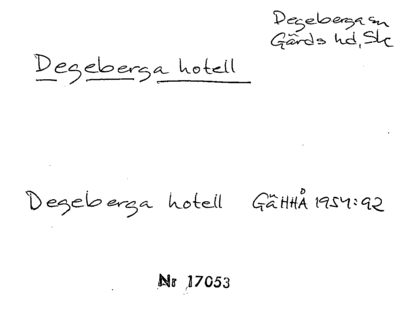 Degeberga sn
Gärds hd, Sk
Degeberga hotell
Degeberga hotell GäHHÅ 1954:92
Nr 17053